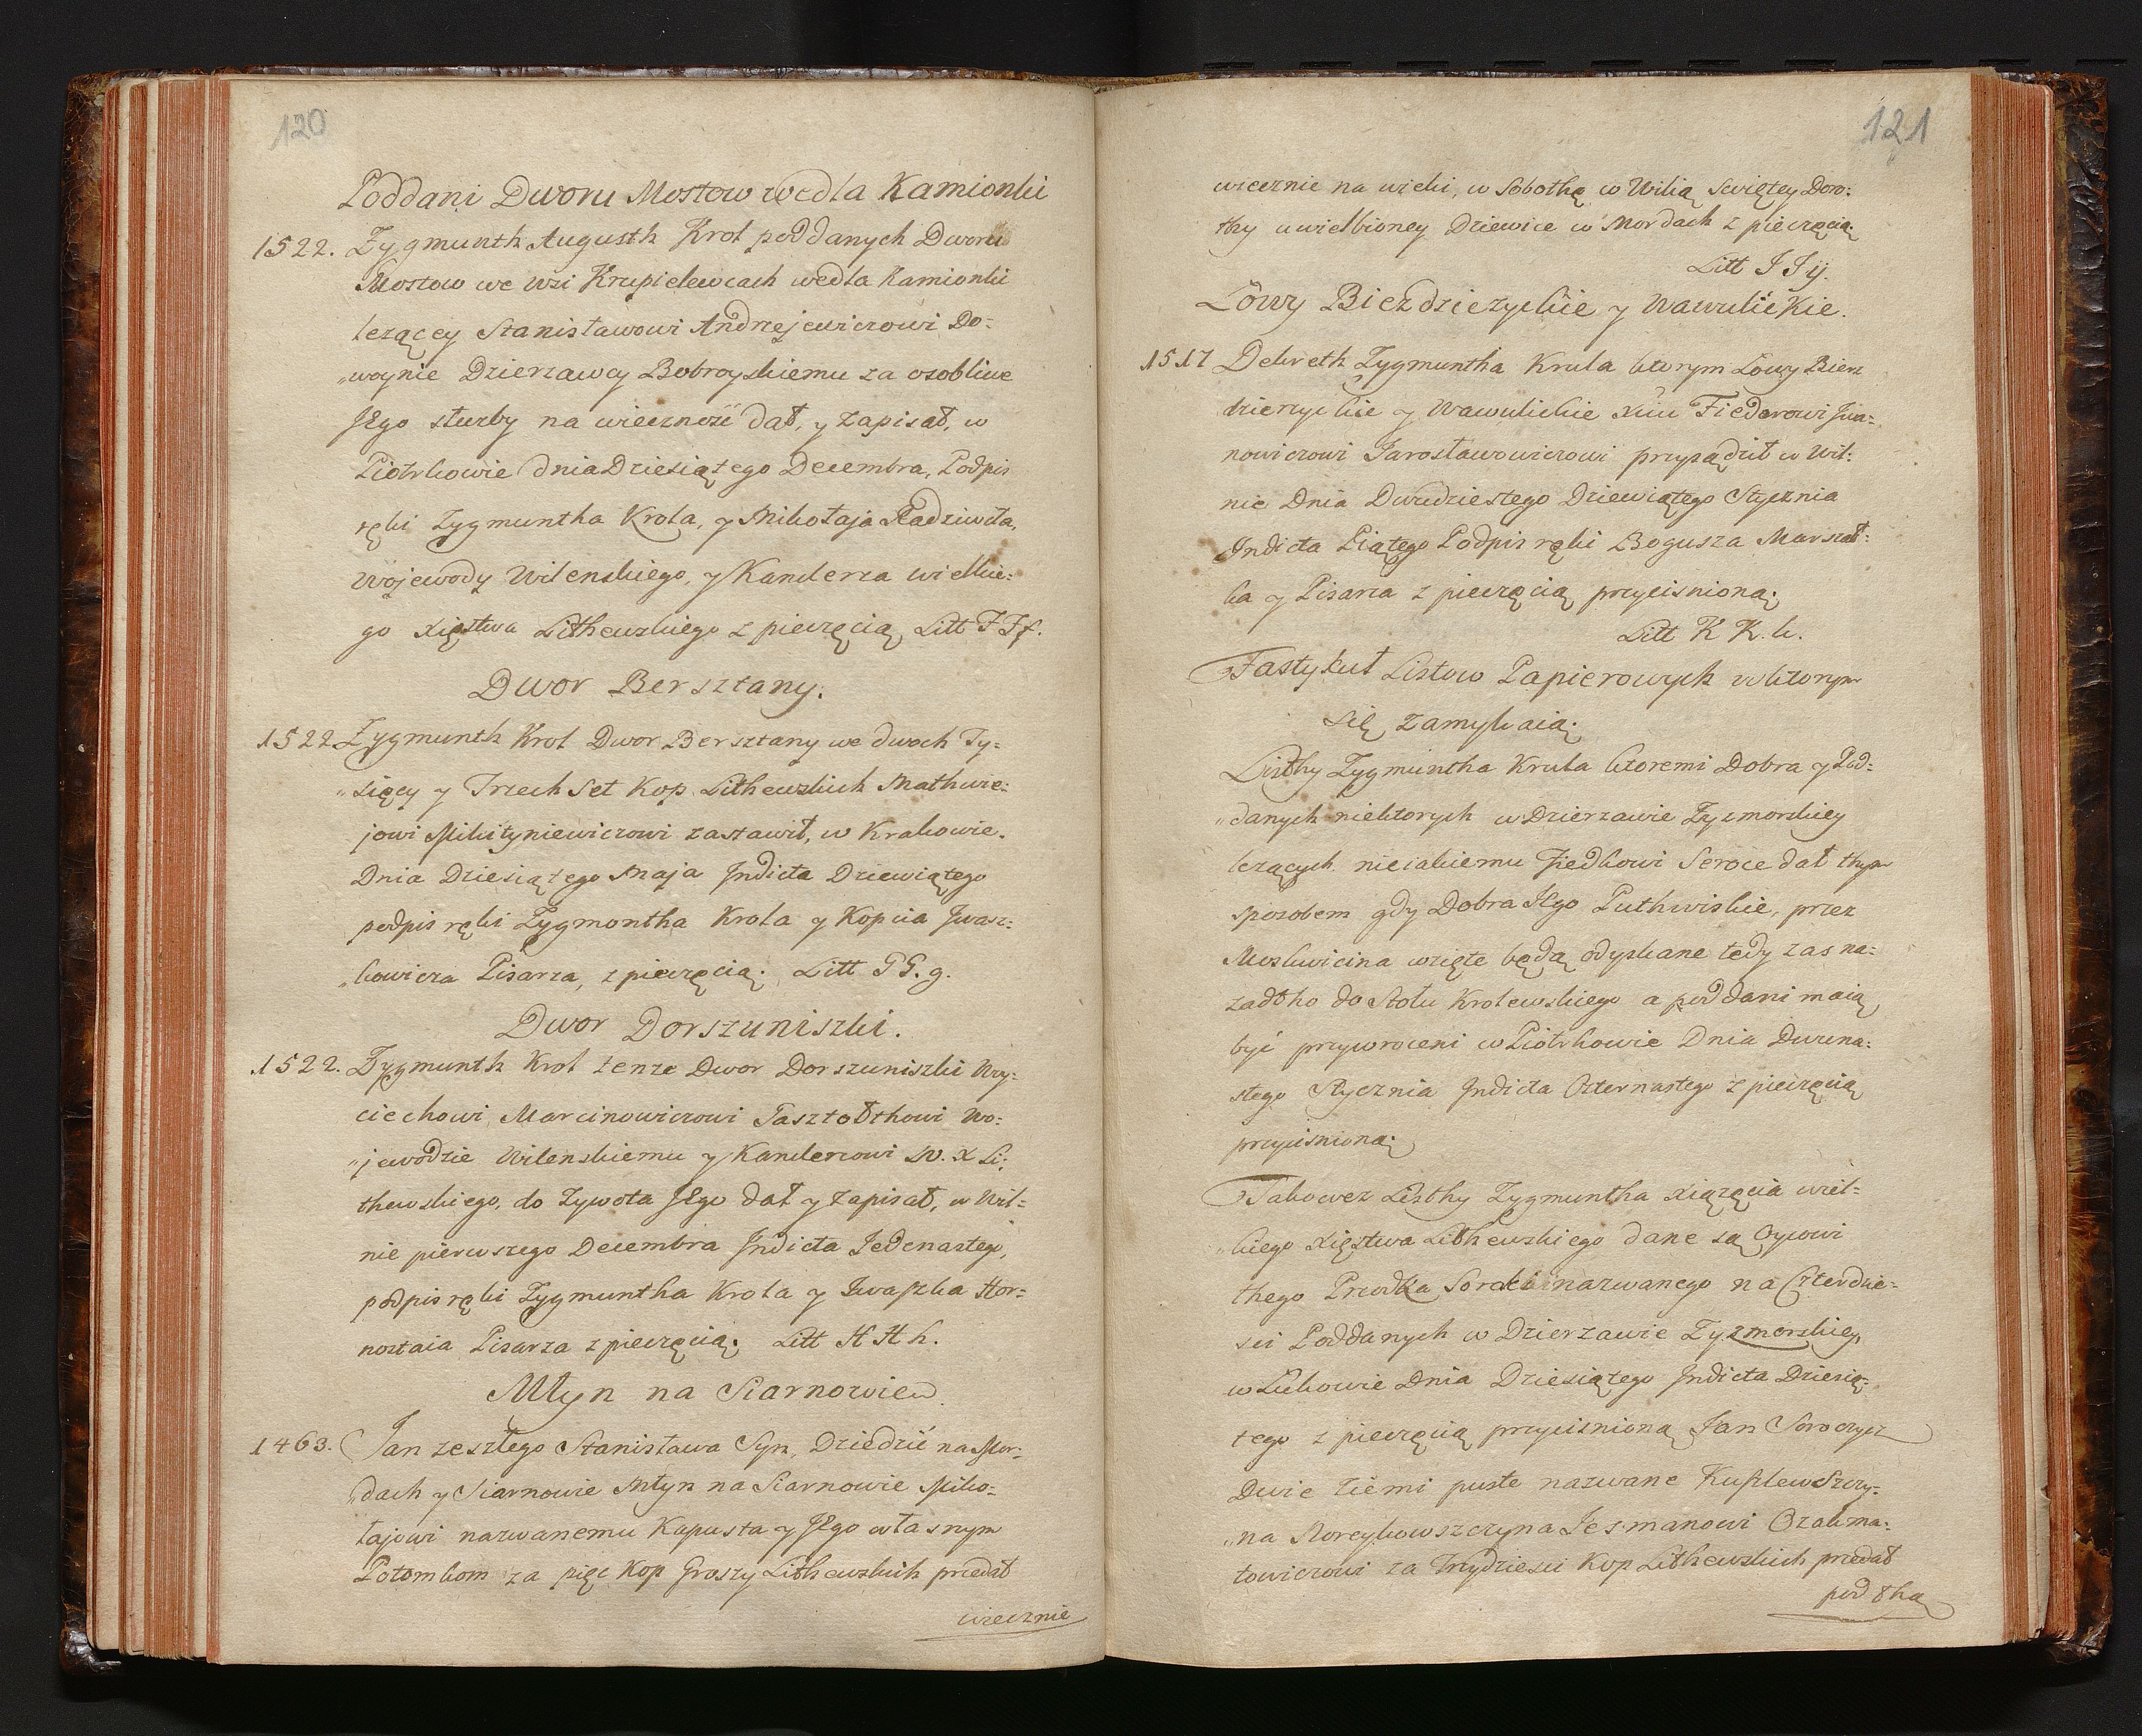 120
Poddani Dworu Mostow wedla Kamionki
1522. Zygmunth Augusth Krol poddanych Dworu
Mostow we wsi Krupielewcach wedla Kamionki
lezącey Stanisławowi Andrzejewiczowi Do=
„woynie Dzierzawcy Bobroyskiemu za osobliwe
JEgo służby na wieczność dał, y zapisał, w
Piotrkowie dnia Dziesiątego Decembra, Podpis
ręki Zygmuntha Krola, y Mikołaja Radziwiła,
Wojewody Wilenskiego, y Kanclerza wielkie=
go Xięstwa Lithewskiego z pieczęcią Litt F F f.
Dwor Bersztany.
1522 Zygmunth Krol Dwor Bersztany we dwoch Ty=
„sięcy y Trzech Set Kop Lithewskich Mathwie=
jowi Mikityniewiczowi zastawił, w Krakowie.
Dnia Dziesiątego Maja Jndicta Dziewiątego
podpis ręki Zygmontha Krola y Kopcia Jwasz=
„kowicza Pisarza, z pieczęcią. Litt G G. g.
Dwor Dorszuniszki.
1522. Zygmunth Krol tenze Dwor Dorszuniszki Woy=
ciechowi Marcinowiczowi Gasztołthowi Wo=
„jewodzie Wilenskiemu y Kanclerzowi W. X Li=
thewskiego, do Zywota JEgo dał y zapisał, w Wil=
nie pierwszego Decembra Jndicta Jedenastego,
podpis ręki Zygmuntha Krola y Jwaszka Hor=
nostaia Pisarza z pieczęcią. Litt H H h.
Młyn na Siarnowie
1463. Jan zeszłego Stanisława Syn, Dziedzić na Mor=
„dach y Siarnowie Młyn na Siarnowie Miko=
łajowi nazwanemu Kapusta y JEgo własnym
Potomkom za pięc Kop Groszy Lithewskich przedał
wiecznie
121
wiecznie na wieki, w Sobothę w Wilią Swiętey Doro=
thy uwielbioney Dziewice w Mordach z pieczęcią.
Litt J J ij.
Łowy Biezdziezyckie y Wawulickie.
1517 Dekreth Zygmuntha Krula ktorym Łowy Bierz
dzierzyckie y Wawulickie Xciu Fiedorowi Jwa=
nowiczowi Jarosławowiczowi przysądził w Wil=
nie Dnia Dwudziestego Dziewiątego Stycznia
Jndicta Piątego Podpis ręki Bogusza Marszał=
ka y Pisarza z pieczęcią przycisnioną.
Litt K K. k.
Fastykuł Listow Papierowych w ktorym
się zamykaią.
Listhy Zygmuntha Krula ktoremi Dobra y Pod=
„danych niektorych w Dzierzawie Zyzmorskiey
lezących nieiakiemu Fiedkowi Seroce dał thym
sposobem gdy Dobra JEgo Puthwiskie, przez
Moskwicina wzięte będą odyskane tedy zas na=
zadtho do Stołu Krolewskiego a poddani maią
być przywroceni w Piotrkowie Dnia Dwuna=
stego Stycznia Jndicta Czternastego z pieczęcią
przycisnioną.
Takowez Listhy Zygmuntha Xiązęcia wiel=
„kiego Xięstwa Lithewskiego dane są Oycowi
thego Fredka Soroki nazwanego na Czterdzie=
sci Poddanych w Dzierzawie Zyzmorskiey,
w Łukowie Dnia Dziesiątego Jndicta Dziesią=
tego z pieczęcią przycisnioną Jan Soroczycz
Dwie Ziemi puste nazwane Kuszlewszczy=
„na Noreykowszczyna Jesmanowi Ozakma=
towiczowi za Trzydziesci Kop Lithewskich przedał
pod tha